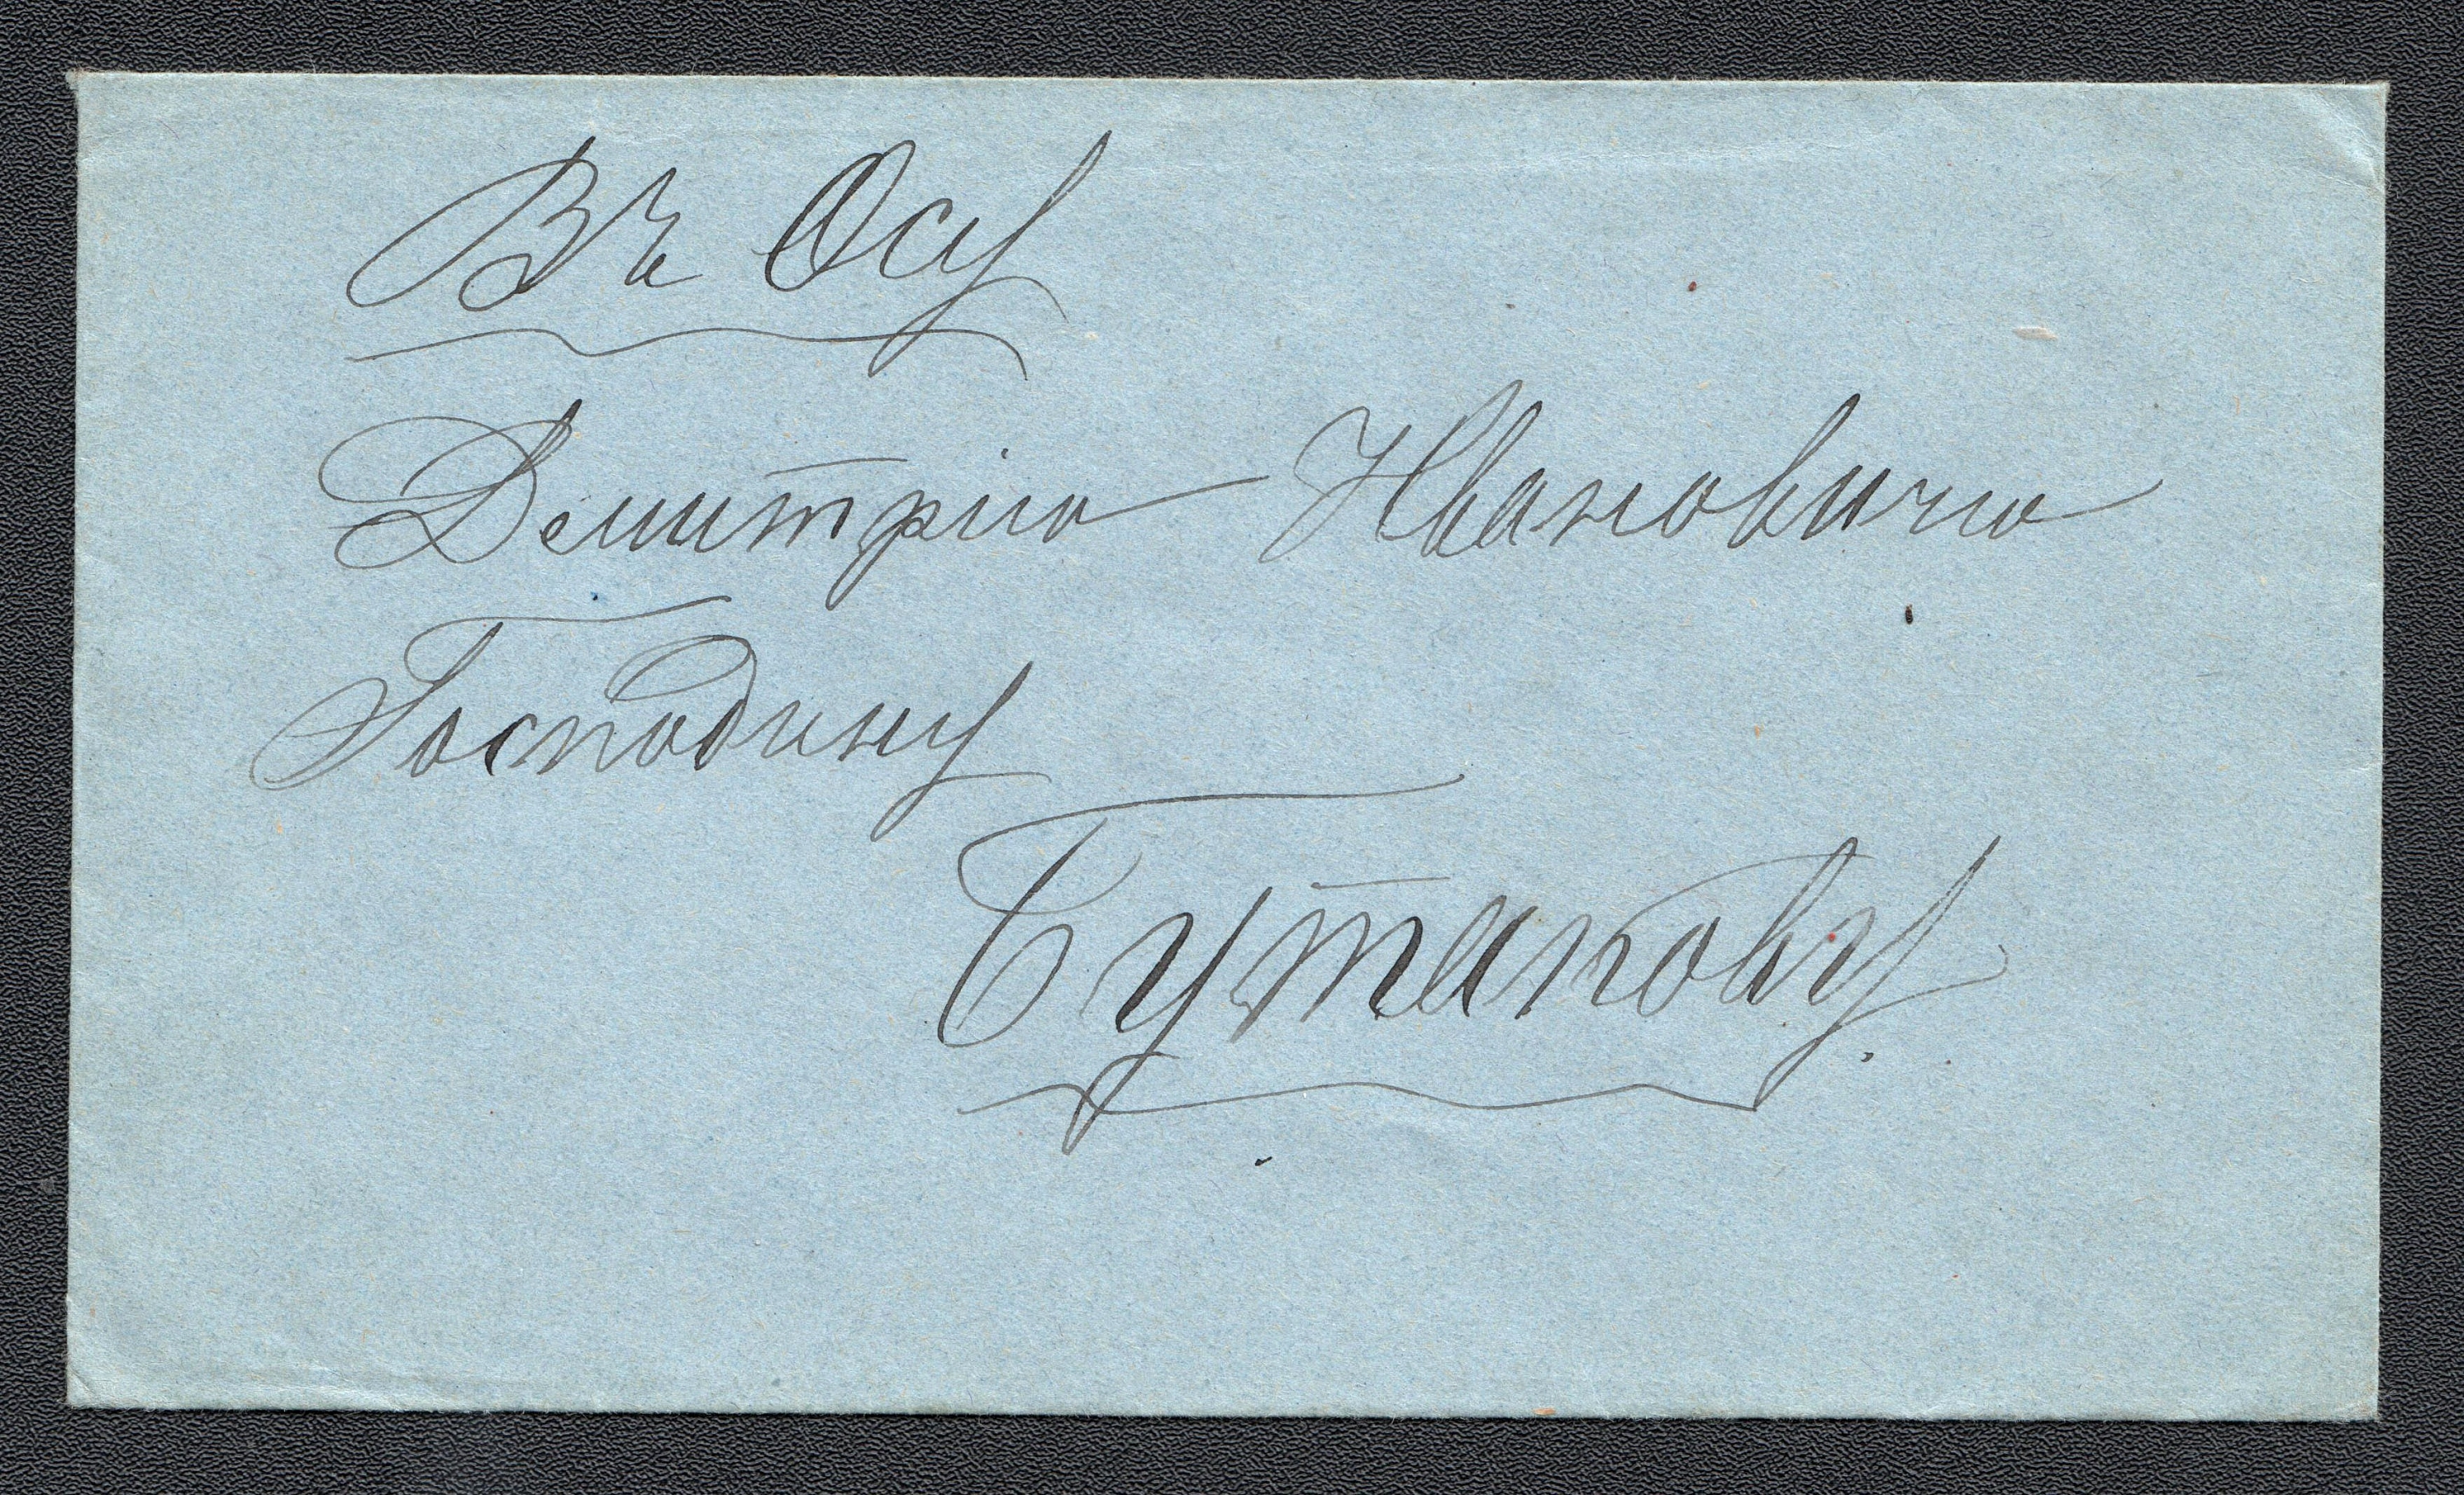 Въ Осу
Демитрію Ивановичю
Господину
Бутакову.